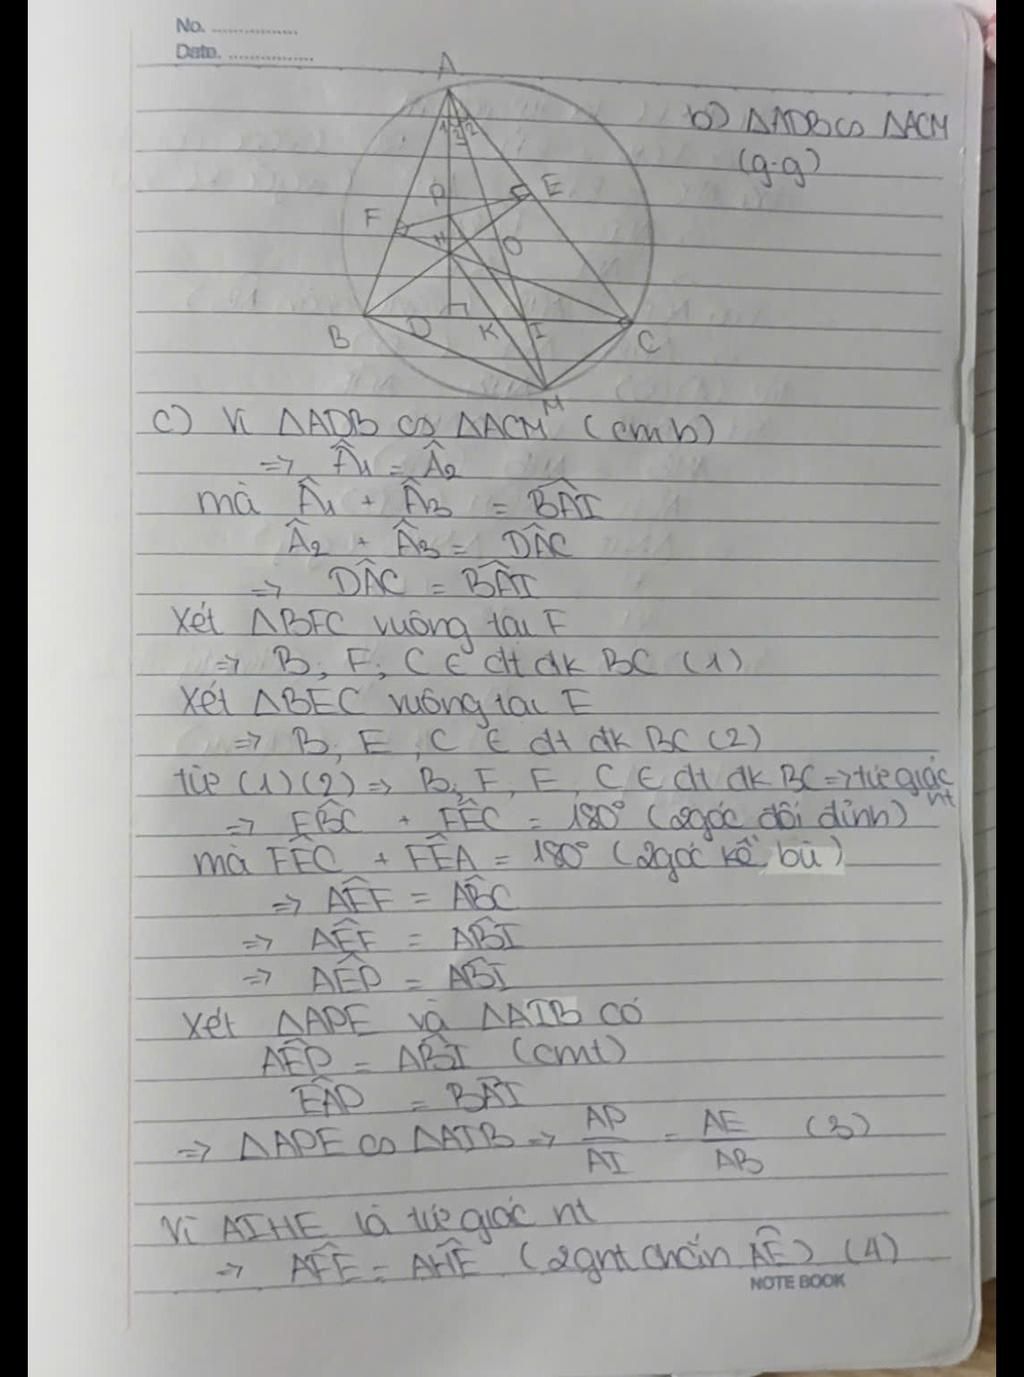 No. ................
Date. ................
A
b) ΔADB ∽ ΔACM
(g-g)
1 3 2
P
E
F
H
O
B
D
K
I
C
M
c) Vì ΔADB ∽ ΔACM (cmb)
=> Â1 = Â2
mà Â1 + Â3 = BÂI
Â2 + Â3 = DÂC
=> DÂC = BÂI
Xét ΔBFC vuông tại F
=> B, F, C ∈ đt đk BC (1)
Xét ΔBEC vuông tại E
=> B, E, C ∈ đt đk BC (2)
từ (1)(2) => B, F, E, C ∈ đt đk BC => tứ giác nt
=> FB̂C + FÊC = 180° (2góc đối đỉnh)
mà FÊC + FÊA = 180° (2góc kề bù)
=> AÊF = AB̂C
=> AÊF = AB̂I
=> AÊP = AB̂I
Xét ΔAPE và ΔAIB có
AÊP = AB̂I (cmt)
EÂP = BÂI
=> ΔAPE ∽ ΔAIB => AP/AI = AE/AB (3)
Vì AFHE là tứ giác nt
=> AF̂E = AĤE (2gnt chắn AE) (4)
NOTE BOOK